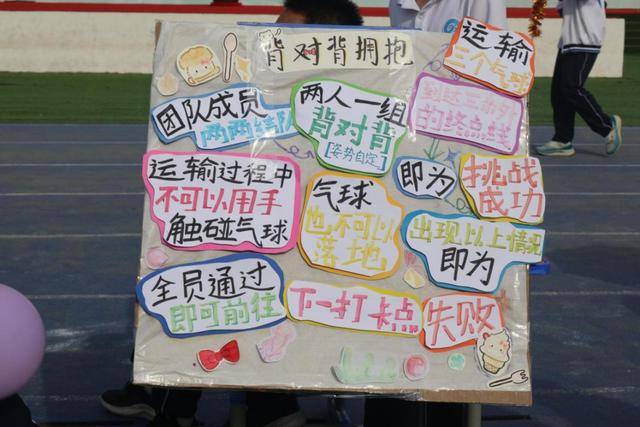 背对背拥抱
运输
三个气球
团队成员
两两结队
两人一组
背对背
[姿势自定]
的终点线
即为
挑战
成功
运输过程中
不可以用手
触碰气球
气球
也不可以
落地
出现以上情况
即为
失败
全员通过
即可前往
下一打卡点